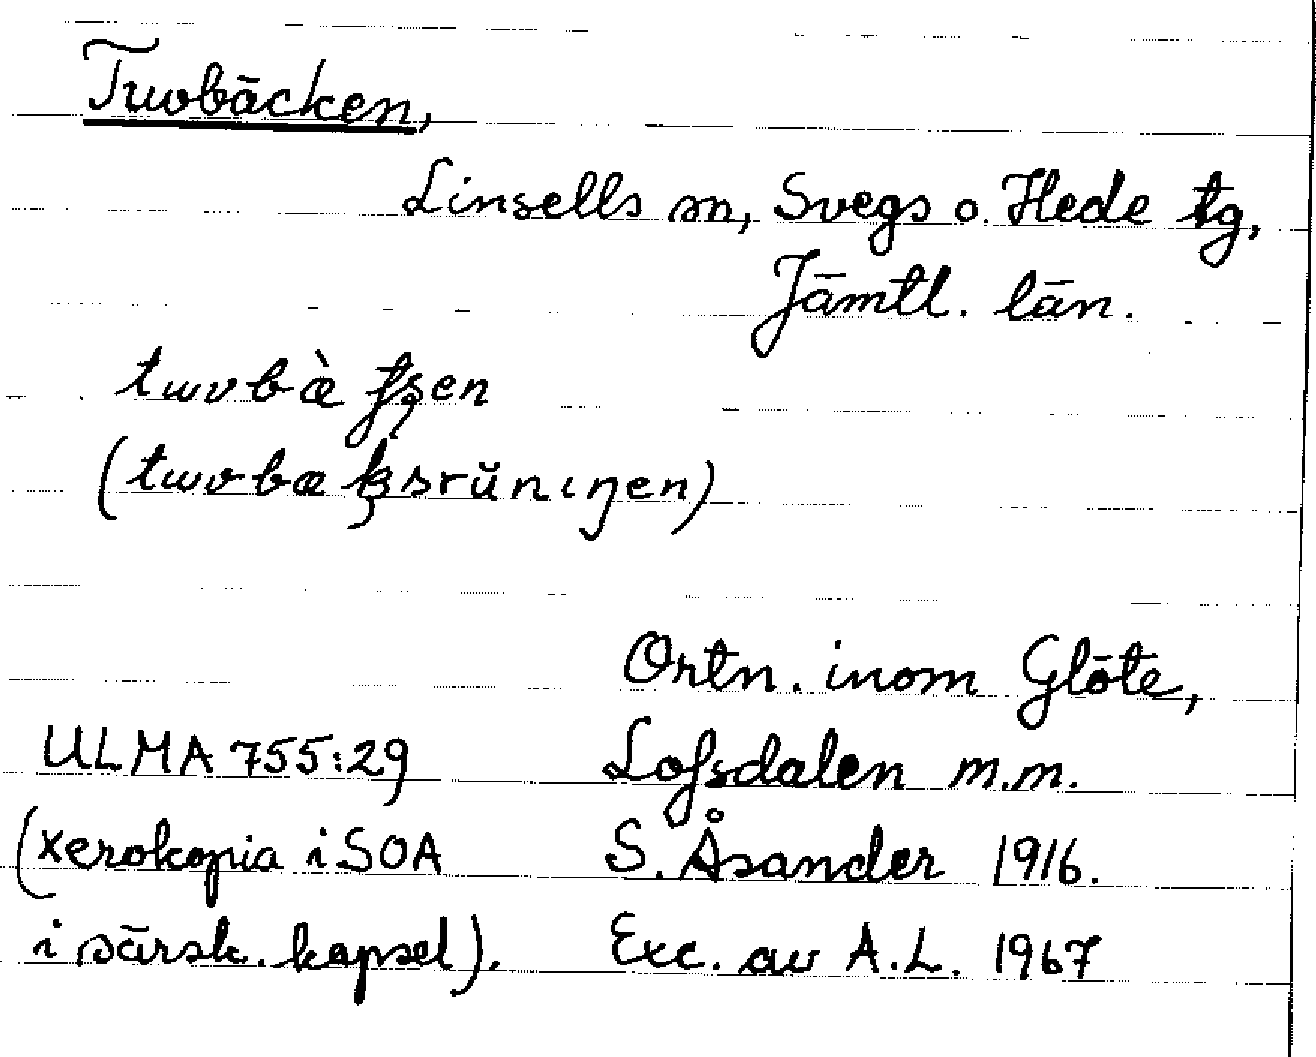 Tuvbäcken,
Linsells sn, Svegs o. Hede tg,
Jämtl. län.
Ortn. inom Glöte,
ULMA 755:29 Lofsdalen m.m.
(xerokopia i SOA S. Åsander 1916.
i särsk. kapsel). Exc. av A.L. 1967